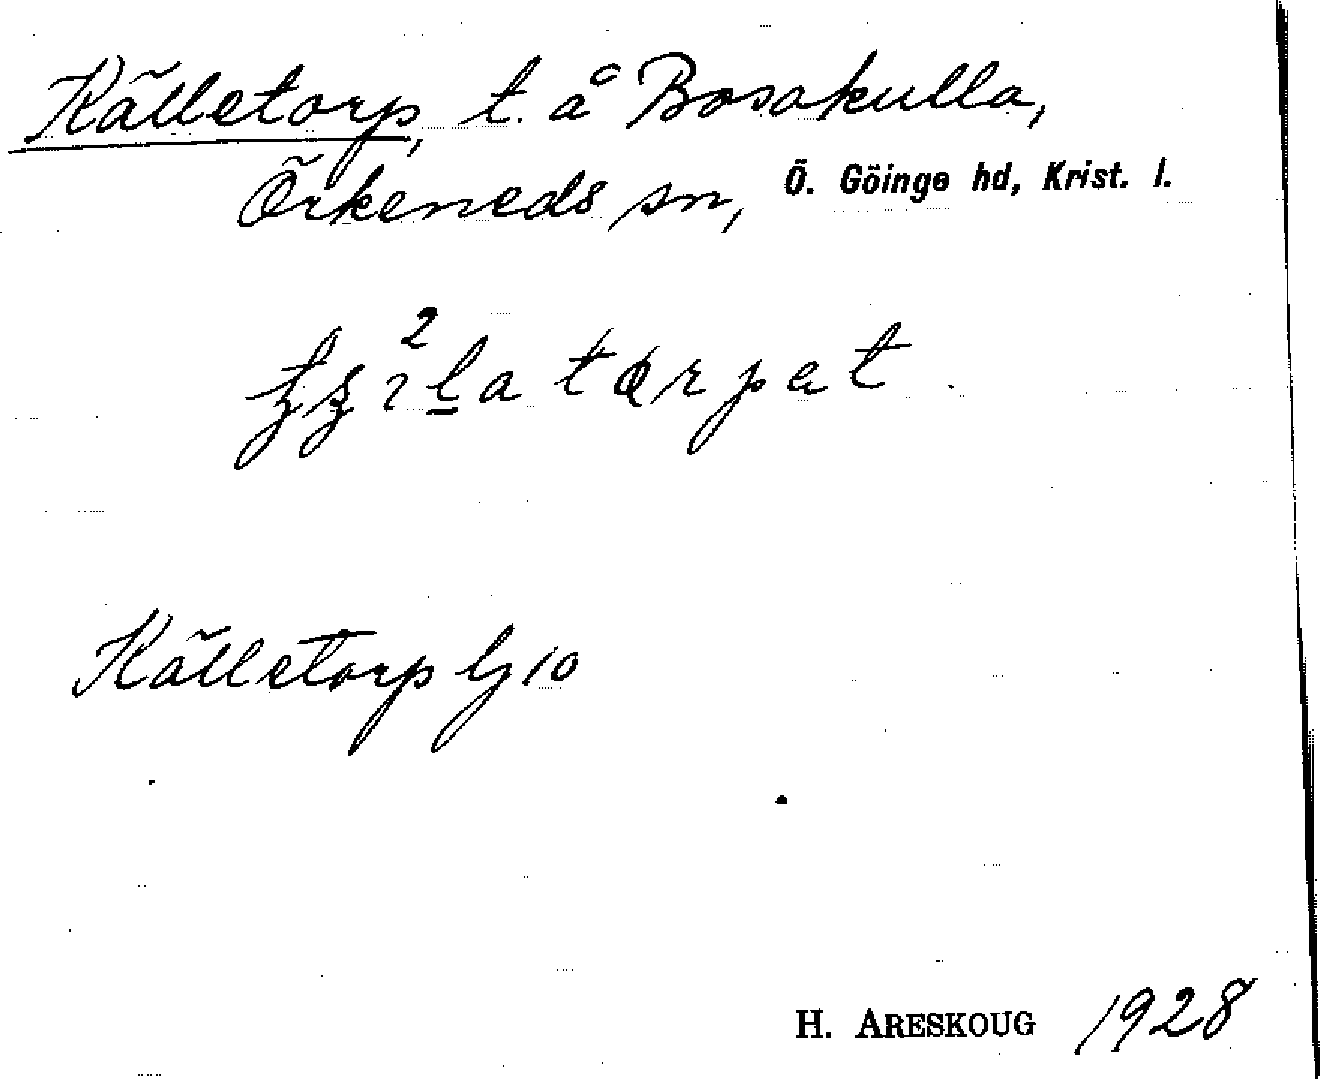 Källetorp, t. å Bosakulla,
Örkeneds sn, Ö. Göinge hd, Krist. l.
Källetorp lj 10
H. ARESKOUG 1928